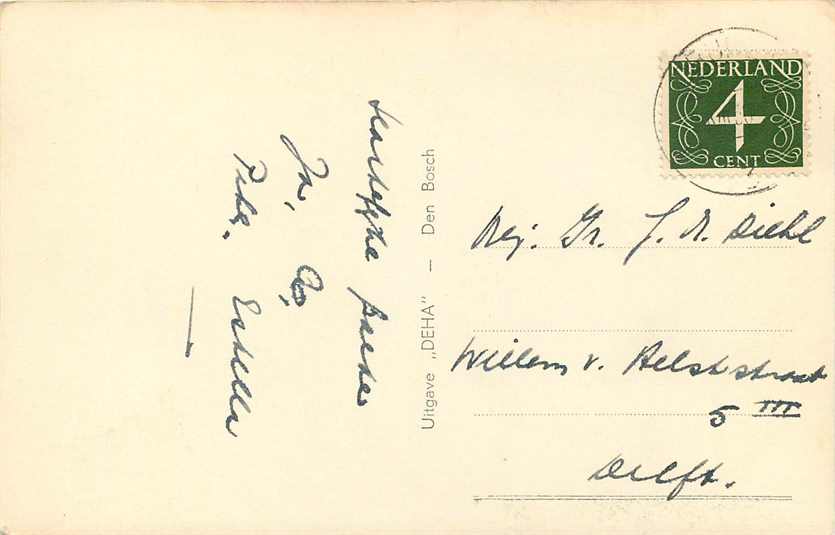 Hartelijke groeten
Jo, Co,
Estella
Uitgave „DEHA" — Den Bosch
NEDERLAND
4
CENT
Mej. Gr. J. A. Diehl
Willem v. Aelststraat
5 III
Delft.